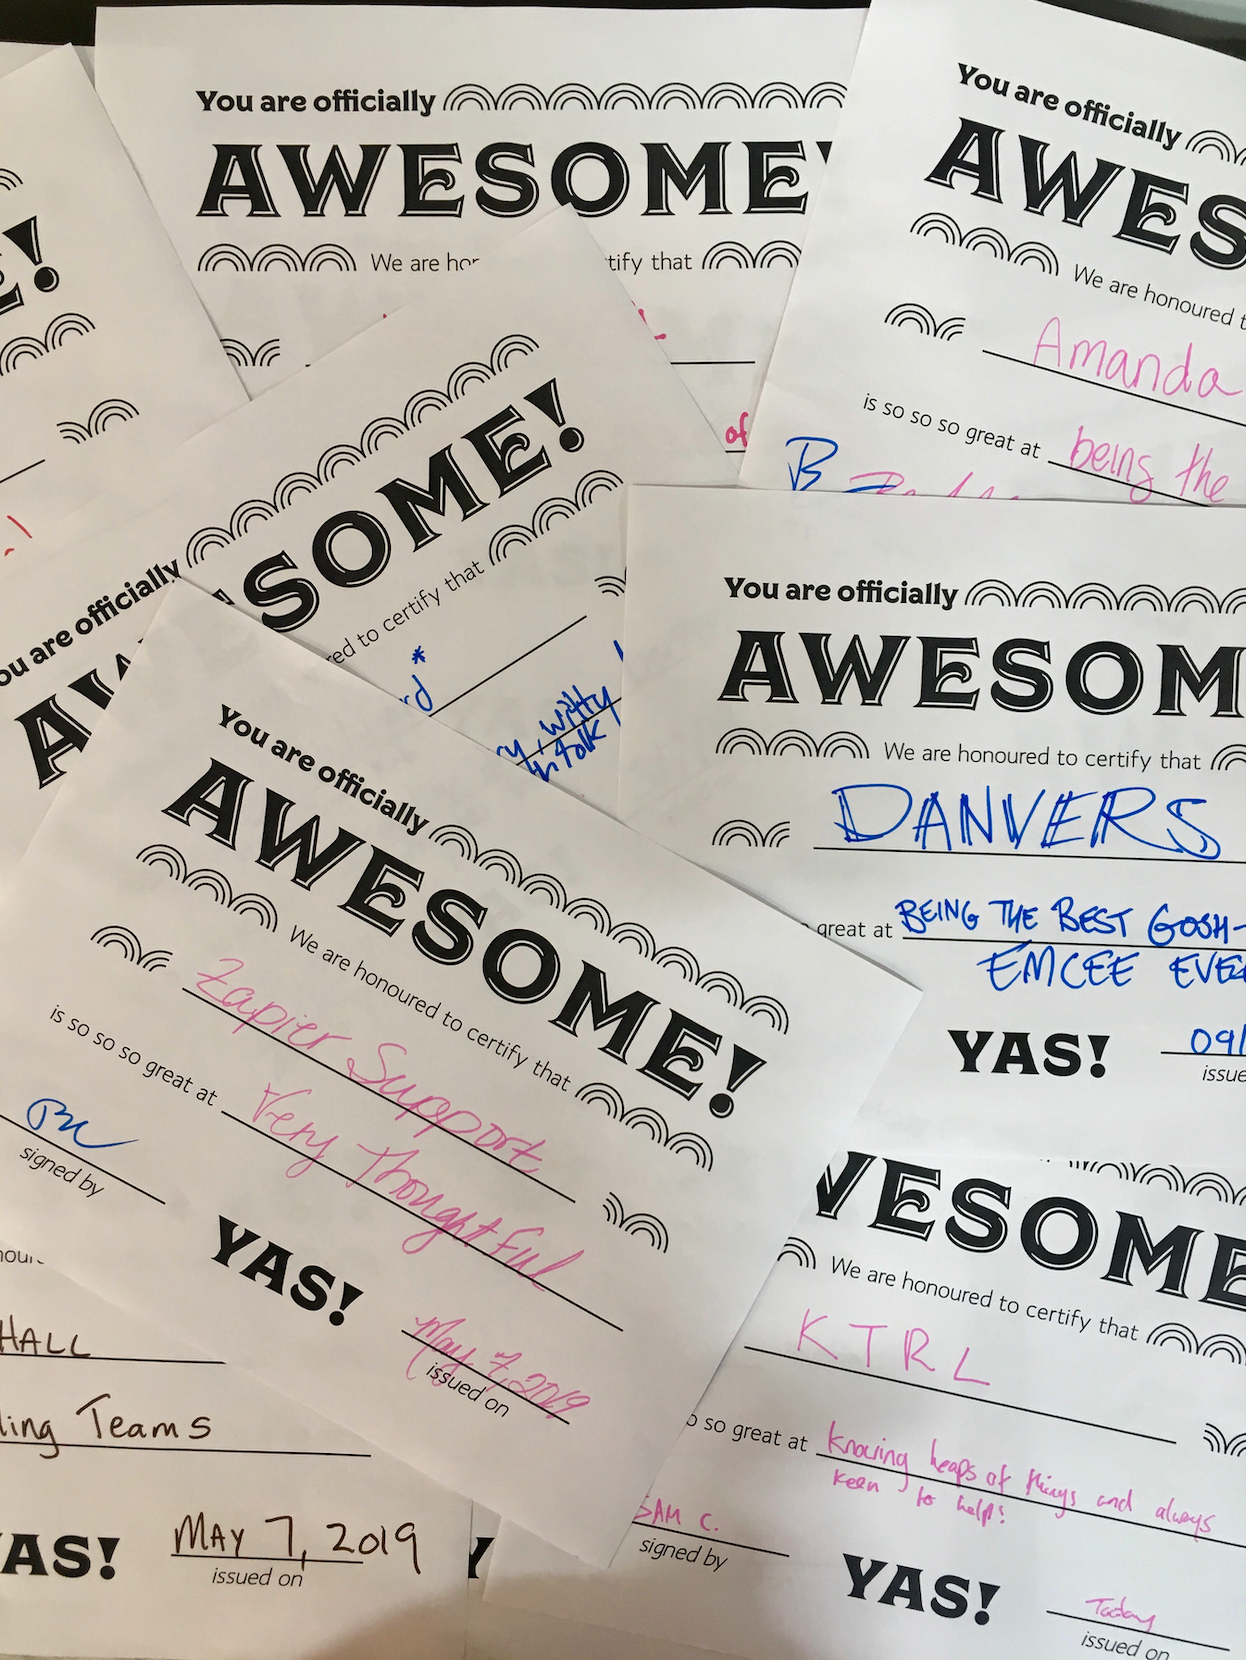 You are officially
AWESOME
We are
tify that
of
You are officially
AWES
We are honoured t
Amanda
is so so so great at being the
B
E!
ou are officially
SOME!
red to certify that
rd*
witty
folk
You are officially
AWESOM
We are honoured to certify that
DANVERS
great at BEING THE BEST GOSH-
EMCEE EVE
YAS!
09/
issue
You are officially
AWESOME!
We are honoured to certify that
Zapier Support
is so so so great at Very Thoughtful
signed by
YAS!
May 7, 2019
issued on
HALL
ling Teams
AS!
MAY 7, 2019
issued on
WESOME
We are honoured to certify that
KTRL
so great at knowing heaps of things and always
keen to help!
SAM C.
signed by
YAS!
Today
issued on